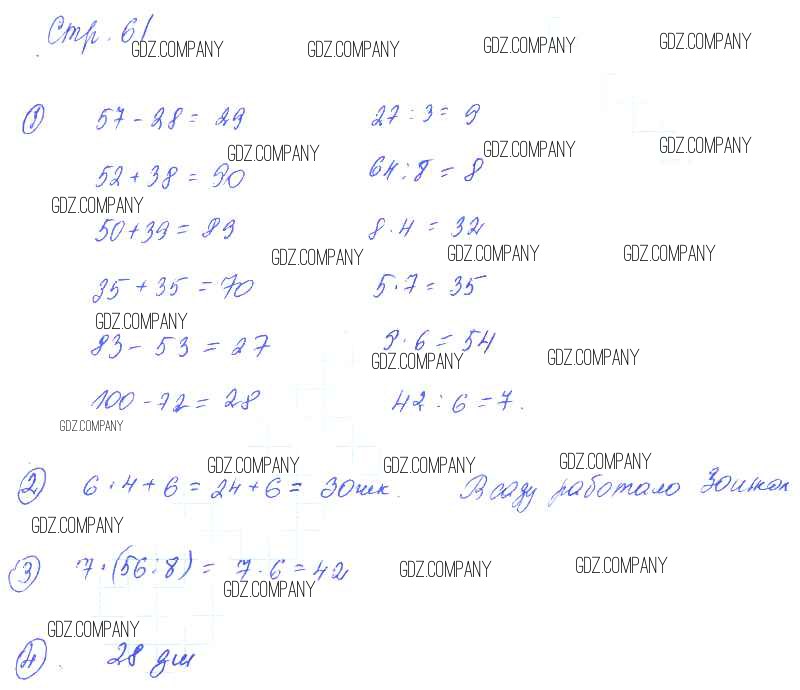 Стр. 61
GDZ.COMPANY GDZ.COMPANY GDZ.COMPANY GDZ.COMPANY
1 57 - 28 = 29 27 : 3 = 9
GDZ.COMPANY GDZ.COMPANY GDZ.COMPANY
52 + 38 = 90 64 : 8 = 8
GDZ.COMPANY
50 + 39 = 89 8 · 4 = 32
GDZ.COMPANY GDZ.COMPANY GDZ.COMPANY
35 + 35 = 70 5 · 7 = 35
GDZ.COMPANY
83 - 53 = 27 9 · 6 = 54
GDZ.COMPANY GDZ.COMPANY
100 - 72 = 28 42 : 6 = 7.
GDZ.COMPANY
GDZ.COMPANY GDZ.COMPANY GDZ.COMPANY
2 6 · 4 + 6 = 24 + 6 = 30 шк. В саду работало 30 шк
GDZ.COMPANY
3 7 · (56 : 8) = 7 · 6 = 42
GDZ.COMPANY GDZ.COMPANY GDZ.COMPANY
GDZ.COMPANY
4. 28 дм